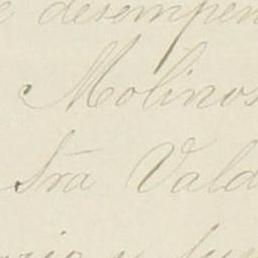 e desempen
Molinos
Sra Vald